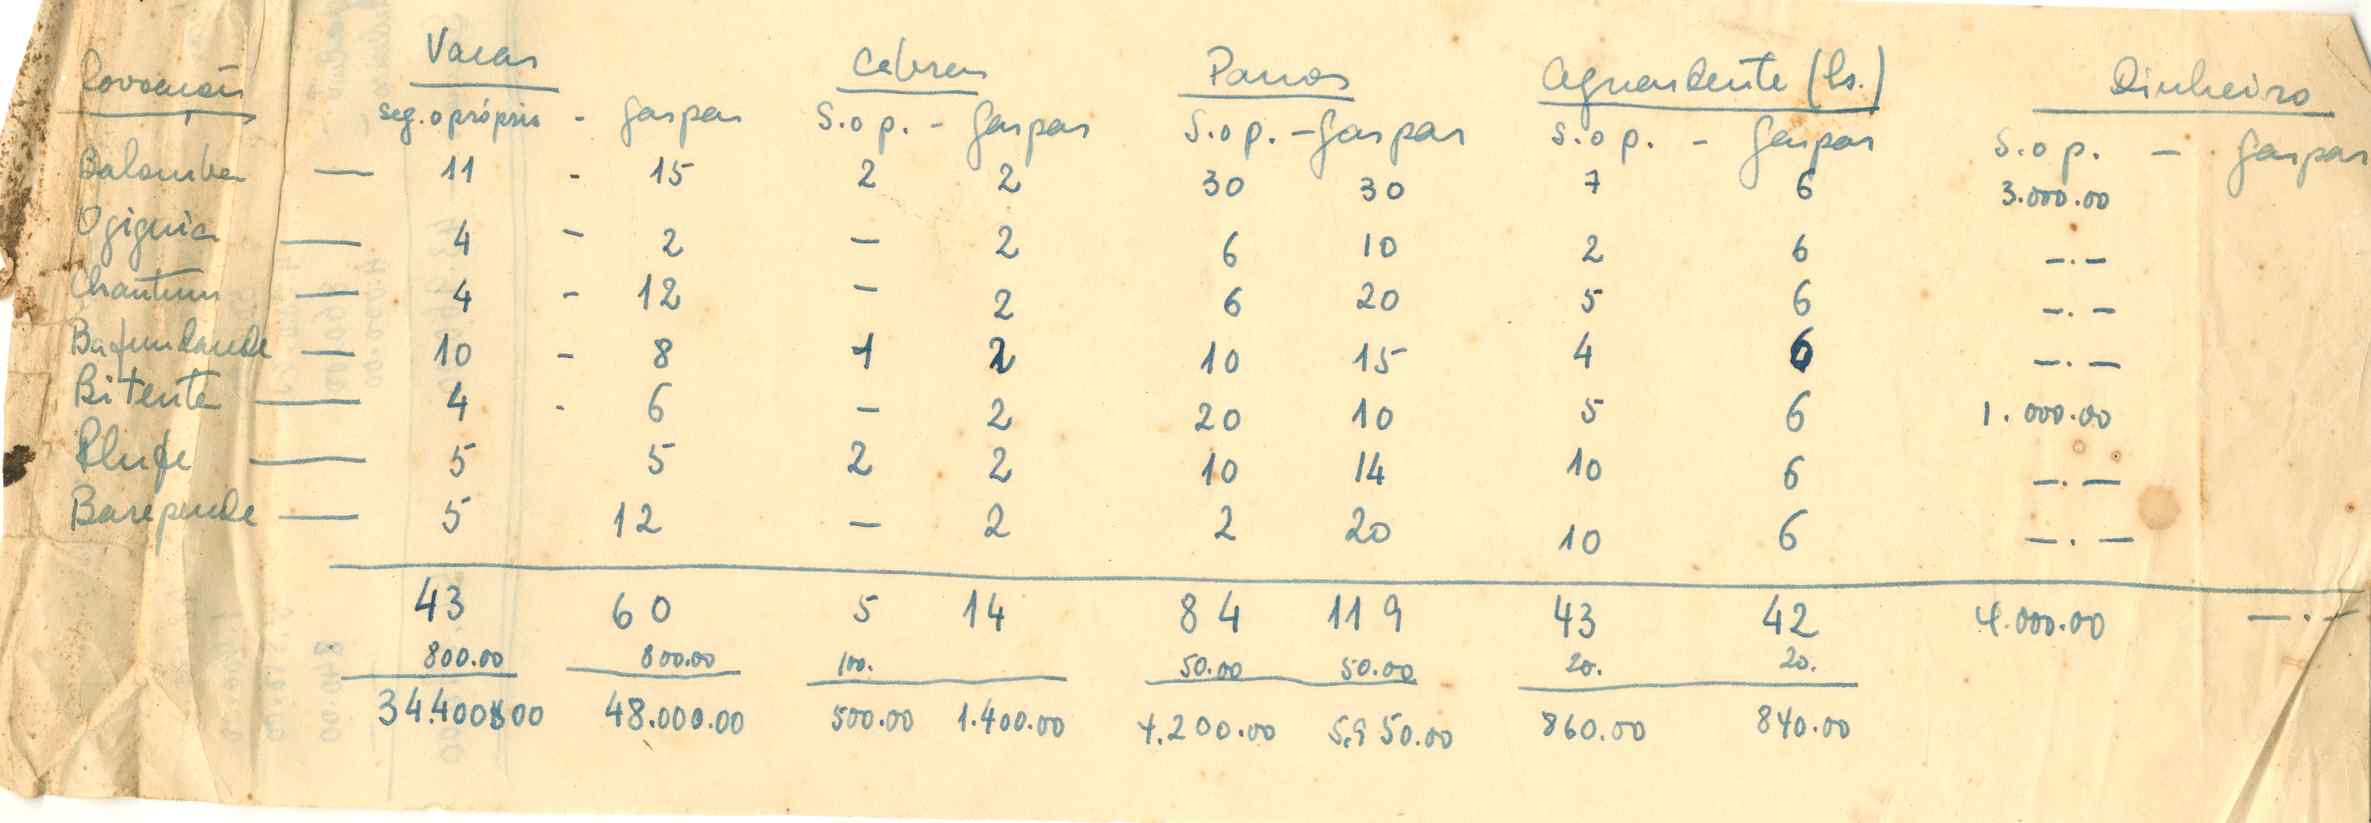 Vacas Cabras Panos Aguardente (ls.) Dinheiro
Povoação seg. o próprio - Gaspar S. o p. - Gaspar S. o p. - Gaspar S. o p. - Gaspar S. o p. - Gaspar
Balomba — 11 - 15 2 2 30 30 7 6 3.000.00
Ogignia — 4 - 2 — 2 6 10 2 6 —.—
Chantum — 4 - 12 — 2 6 20 5 6 —.—
Bufundande — 10 - 8 1 2 10 15 4 6 —.—
Bitenta — 4 - 6 — 2 20 10 5 6 1.000.00
— 5 5 2 2 10 14 10 6 —.—
Barepunde — 5 12 — 2 2 20 10 6 —.—
43 60 5 14 84 119 43 42 4.000.00 —.—
800.00 800.00 100. 50.00 50.00 20. 20.
34.400$00 48.000.00 500.00 1.400.00 4.200.00 5.950.00 860.00 840.00